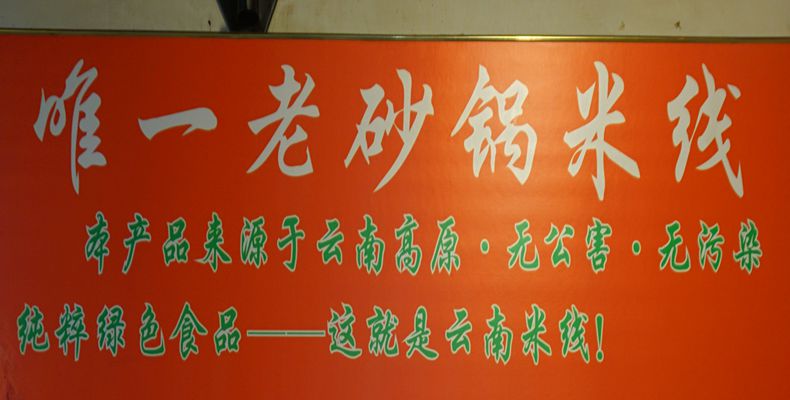 唯一老砂锅米线
本产品来源于云南高原·无公害·无污染
纯粹绿色食品——这就是云南米线!